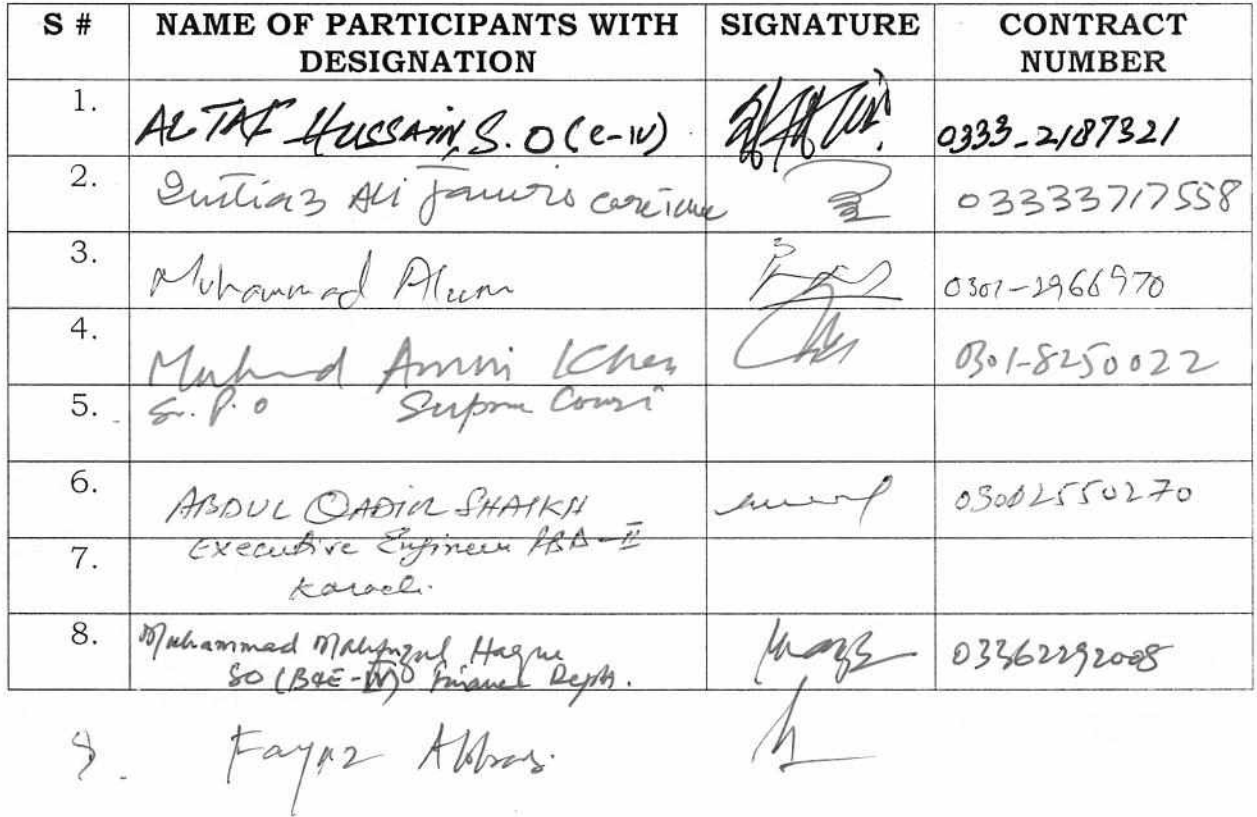 S # NAME OF PARTICIPANTS WITH DESIGNATION SIGNATURE CONTRACT NUMBER
1. ALTAF HUSSAIN, S.O (C-IV) 0333-2187321
2. Imtiaz Ali 03333717558
3. Muhammad Alum 0301-2966970
4. Muhd Amin Khan 0301-8250022
5. Sr. P.O Suprm Court
6. ABDUL QADIR SHAIKH 03002550270
7. Executive Engineer PBD-II
Karachi.
8. Muhammad Mahfuzul Haque 03362292008
SO (B&E-IV) Finance Deptt.
Fayaz Abbas.